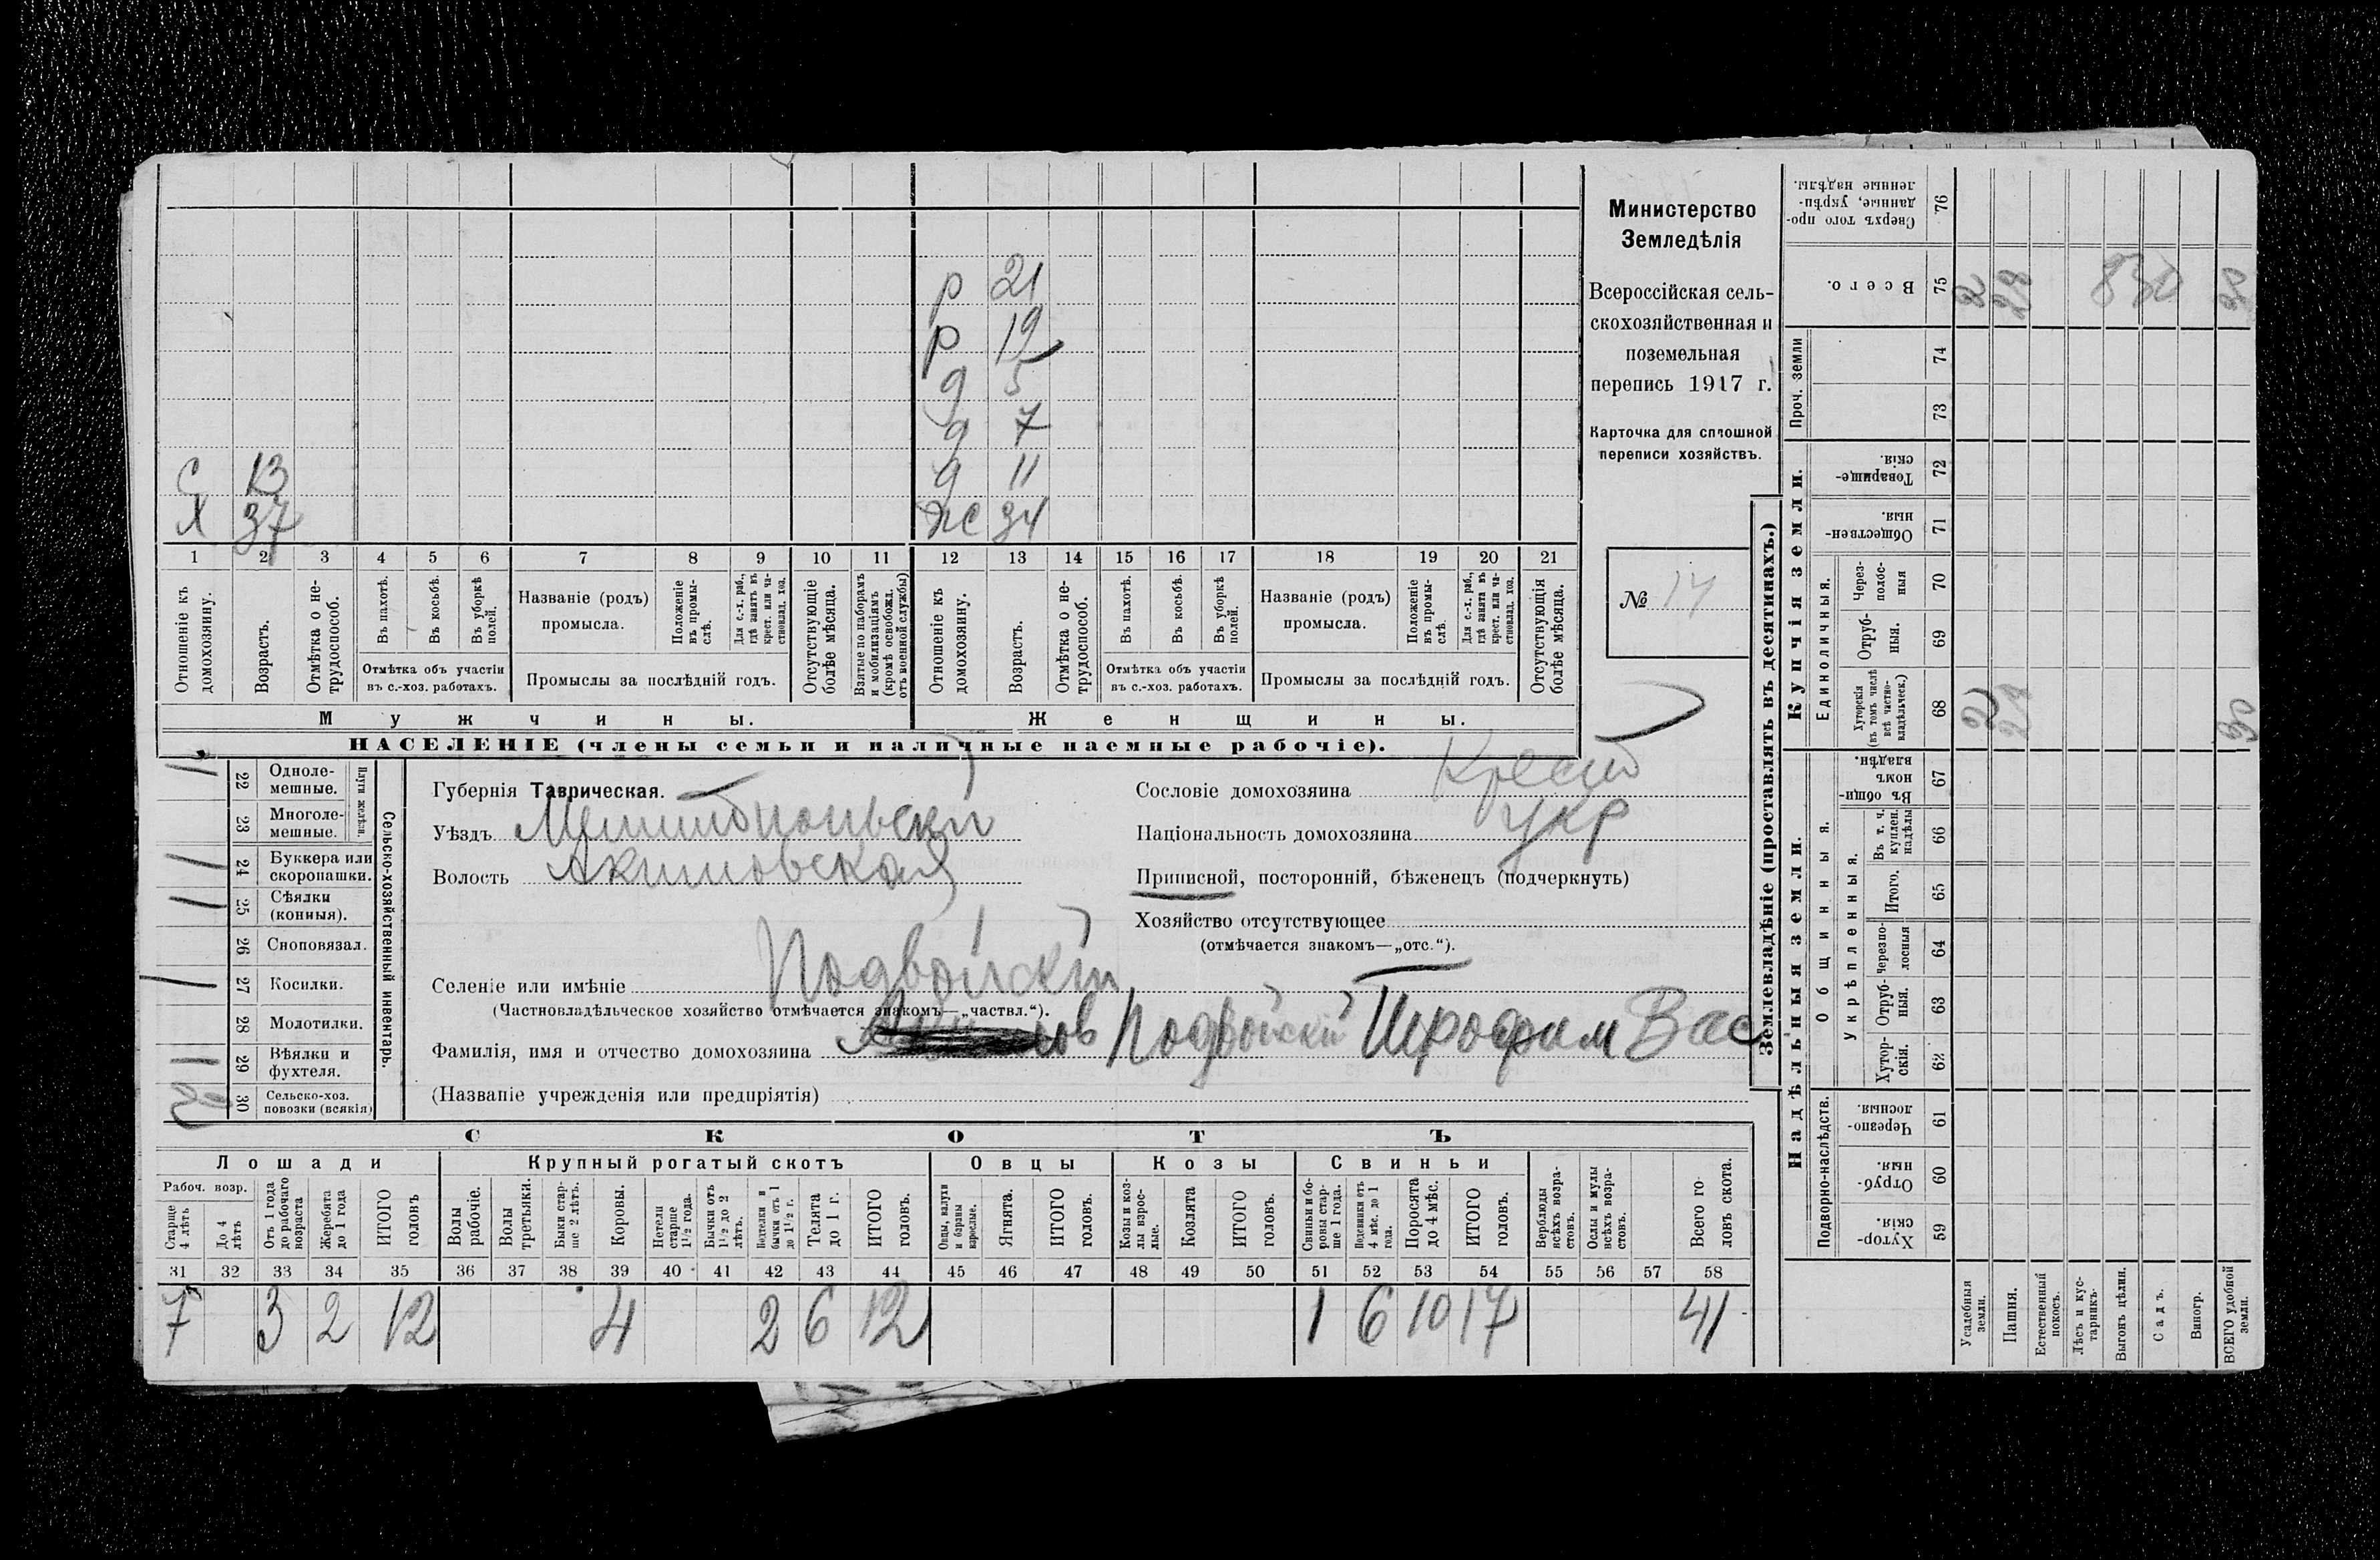 р 21
р 19
д 5
д 7
С 13 д 11
Х 37 Ж 34
1 2 3 4 5 6 7 8 9 10 11 12 13 14 15 16 17 18 19 20 21
Отношеніе къ домохозяину.
Возрастъ.
Отмѣтка о не-трудоспособ.
Въ пахотѣ.
Въ косьбѣ.
Въ уборкѣ полей.
Отмѣтка объ участіи
въ с.-хоз. работахъ.
Названіе (родъ)
промысла.
Положеніе въ промы-слѣ.
Для с.-х. раб., гдѣ занятъ въ крест. или ча-стновлад. хоз.
Промыслы за послѣдній годъ.
Отсутствующіе болѣе мѣсяца.
Взятые по наборамъ и мобилизаціямъ (кромѣ освобожд. отъ военной службы)
Отношеніе къ домохозяину.
Возрастъ.
Отмѣтка о не-трудоспособ.
Въ пахотѣ.
Въ косьбѣ.
Въ уборкѣ полей.
Отмѣтка объ участіи
въ с.-хоз. работахъ.
Названіе (родъ)
промысла.
Положеніе въ промы-слѣ.
Для с.-х. раб., гдѣ занята въ крест. или ча-стновлад. хоз.
Промыслы за послѣдній годъ.
Отсутствующія болѣе мѣсяца.
Мужчины.
Женщины.
НАСЕЛЕНІЕ (члены семьи и наличные наемные рабочіе).
Министерство
Земледѣлія
Всероссійская сель-
скохозяйственная и
поземельная
перепись 1917 г.
Карточка для сплошной
переписи хозяйствъ.
№ 14
Плуги желѣзн.
1 22 Однолемешные.
23 Многолемешные.
11 24 Буккера или скоропашки.
11 25 Сѣялки (конныя).
26 Сноповязал.
1 27 Косилки.
28 Молотилки.
1 29 Вѣялки и фухтеля.
30 Сельско-хоз. повозки (всякія)
Сельско-хозяйственный инвентарь.
Губернія Таврическая.
Уѣздъ Мелитопольскій
Волость Акимовская
Селеніе или имѣніе Подвойскій
(Частновладѣльческое хозяйство отмѣчается знакомъ—„частвл.“).
Фамилія, имя и отчество домохозяина Подвойскій Вас
(Названіе учрежденія или предпріятія)
Сословіе домохозяина Крест
Національность домохозяина укр
Приписной, посторонній, бѣженецъ (подчеркнуть)
Хозяйство отсутствующее
(отмѣчается знакомъ—„отс.“).
СКОТЪ
Лошади
Крупный рогатый скотъ
Овцы
Козы
Свиньи
Рабоч. возр.
Старше 4 лѣтъ
До 4 лѣтъ
Отъ 1 года до рабочаго возраста
Жеребята до 1 года
ИТОГО головъ
Волы рабочіе.
Волы третьяки.
Быки стар-ше 2 лѣтъ.
Коровы.
Нетели старше 1½ года.
Бычки отъ 1½ до 2 лѣтъ.
Подтелки и бычки отъ 1 до 1½ г.
Телята до 1 г.
ИТОГО головъ.
Овцы, валухи и бараны взрослые.
Ягнята.
ИТОГО головъ.
Козы и коз-лы взрос-лые.
Козлята
ИТОГО головъ.
Свиньи и бо-ровы стар-ше 1 года.
Подсвинки отъ 4 мѣс. до 1 года.
Поросята до 4 мѣс.
ИТОГО головъ.
Верблюды всѣхъ возра-стовъ.
Ослы и мулы всѣхъ возра-стовъ.
Всего го-ловъ скота.
31 32 33 34 35 36 37 38 39 40 41 42 43 44 45 46 47 48 49 50 51 52 53 54 55 56 57 58
7 3 2 12 4 2 6 12 1 6 10 17 41
Землевладѣніе (проставлять въ десятинахъ.)
Купчія земли.
Надѣльныя земли.
Проч. земли
Единоличныя.
Общинныя.
Укрѣпленныя.
Подворно-наслѣдств.
Сверхъ того про-данные, укрѣп-ленные надѣлы. 76
Всего. 75 2 28 830 30
74
73
Товарище-скія. 72
Обществен-ныя. 71
Через-полос-ныя 70
Отруб-ныя. 69
Хуторскія (въ томъ числѣ всѣ частно-владѣльческ.) 68 2 28 30
Въ общин-номъ владѣн. 67
Въ т. ч. куплен. надѣлы 66
Итого. 65
Черезпо-лосныя 64
Отруб-ныя. 63
Хутор-скія. 62
Черезпо-лосныя. 61
Отруб-ныя. 60
Хутор-скія. 59
Усадебныя земли.
Пашня.
Естественный покосъ.
Лѣсъ и кус-тарникъ.
Выгонъ цѣлин.
Садъ.
Виногр.
ВСЕГО удобной земли.